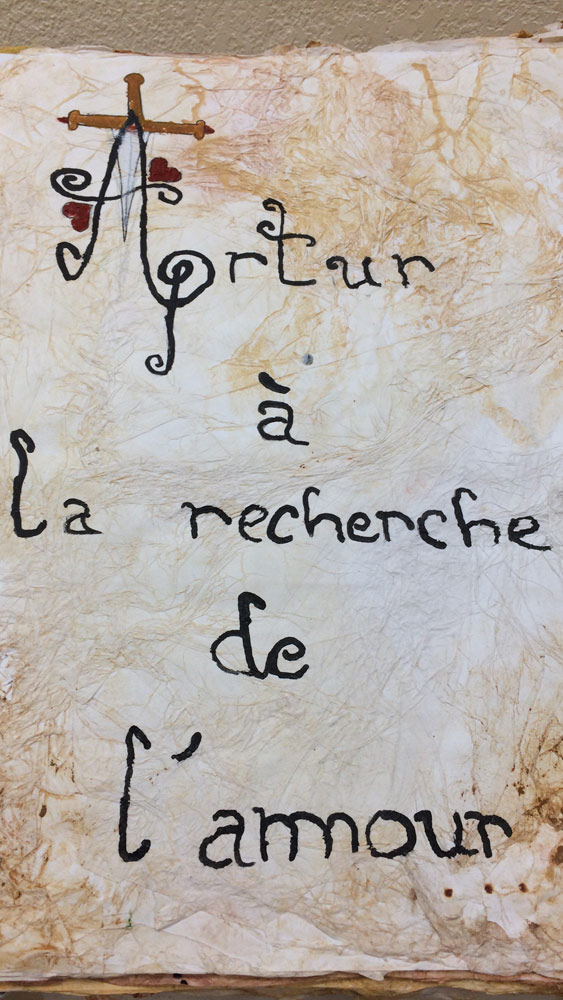 Artur
à
la recherche
de
l'amour